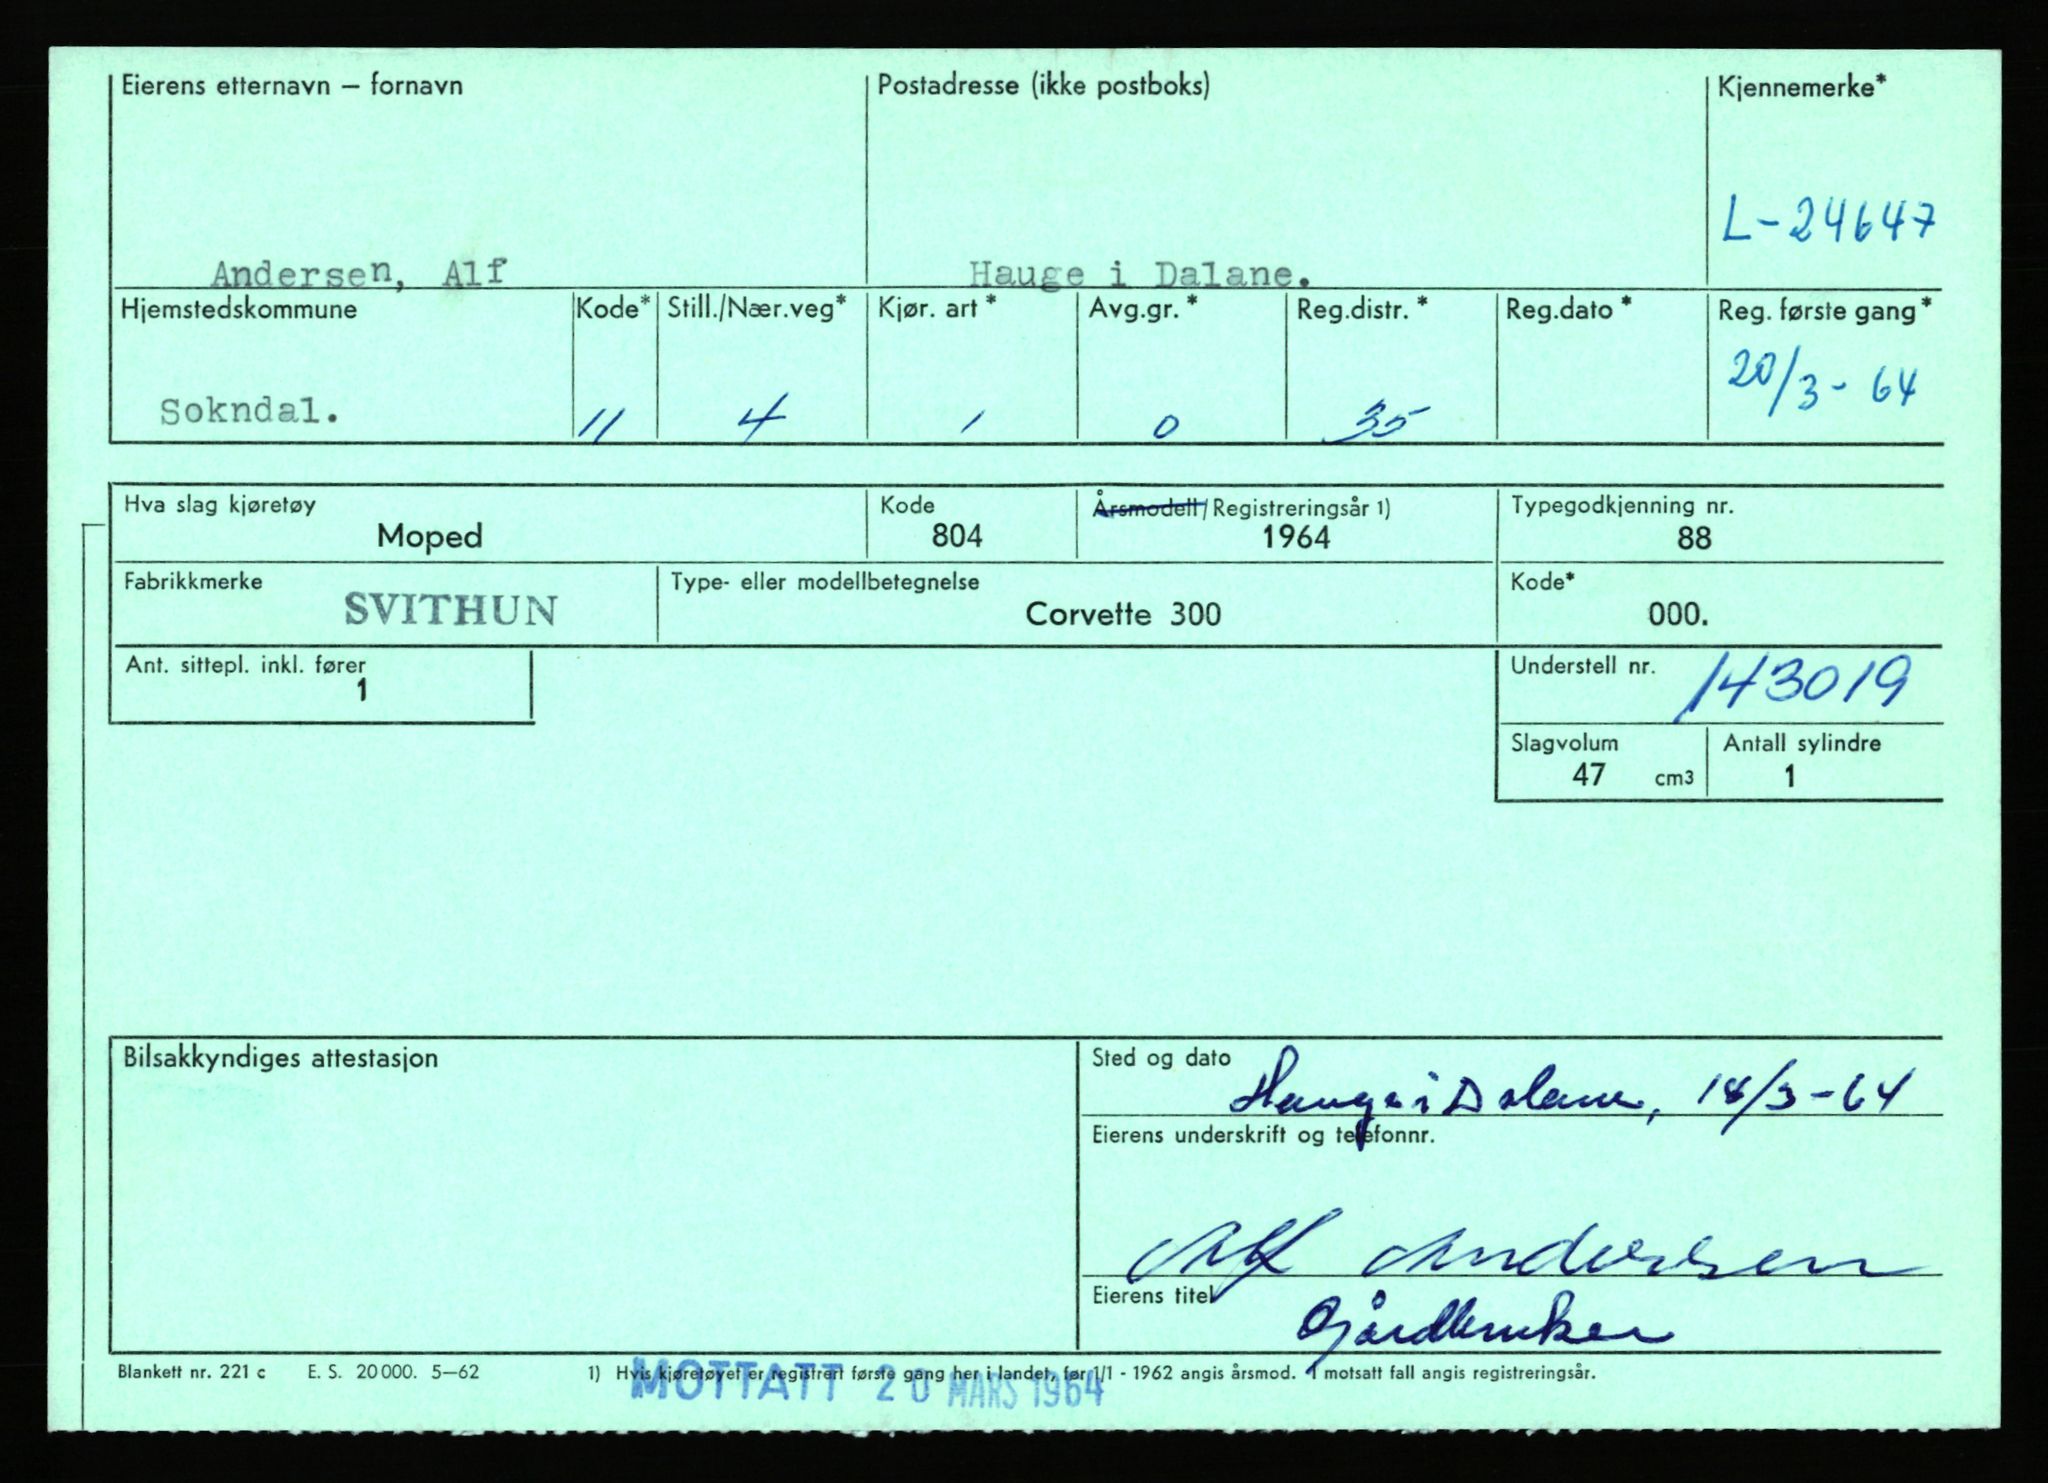 Eierens etternavn — fornavn
Postadresse (ikke postboks)
Kjennemerke*
L-24647
Andersen, Alf
Hauge i Dalane.
Hjemstedskommune
Kode*
Still./Nær.veg*
Kjør. art *
Avg.gr. *
Reg.distr. *
Reg.dato *
Reg. første gang*
Sokndal.
11
4
1
0
35
20/3-64
Hva slag kjøretøy
Moped
Kode
804
Årsmodell/Registreringsår 1)
1964
Typegodkjenning nr.
88
Fabrikkmerke
SVITHUN
Type- eller modellbetegnelse
Corvette 300
Kode*
000.
Ant. sittepl. inkl. fører
1
Understell nr.
143019
Slagvolum
47 cm3
Antall sylindre
1
Bilsakkyndiges attestasjon
Sted og dato
Hauge i Dalane, 18/3-64
Eierens underskrift og telefonnr.
Alf Andersen
Eierens titel
Gårdbruker
Blankett nr. 221 c E. S. 20 000. 5—62
1) Hvis kjøretøyet er registrert første gang her i landet, før 1/1 - 1962 angis årsmod. I motsatt fall angis registreringsår.
MOTTATT 20 MARS 1964